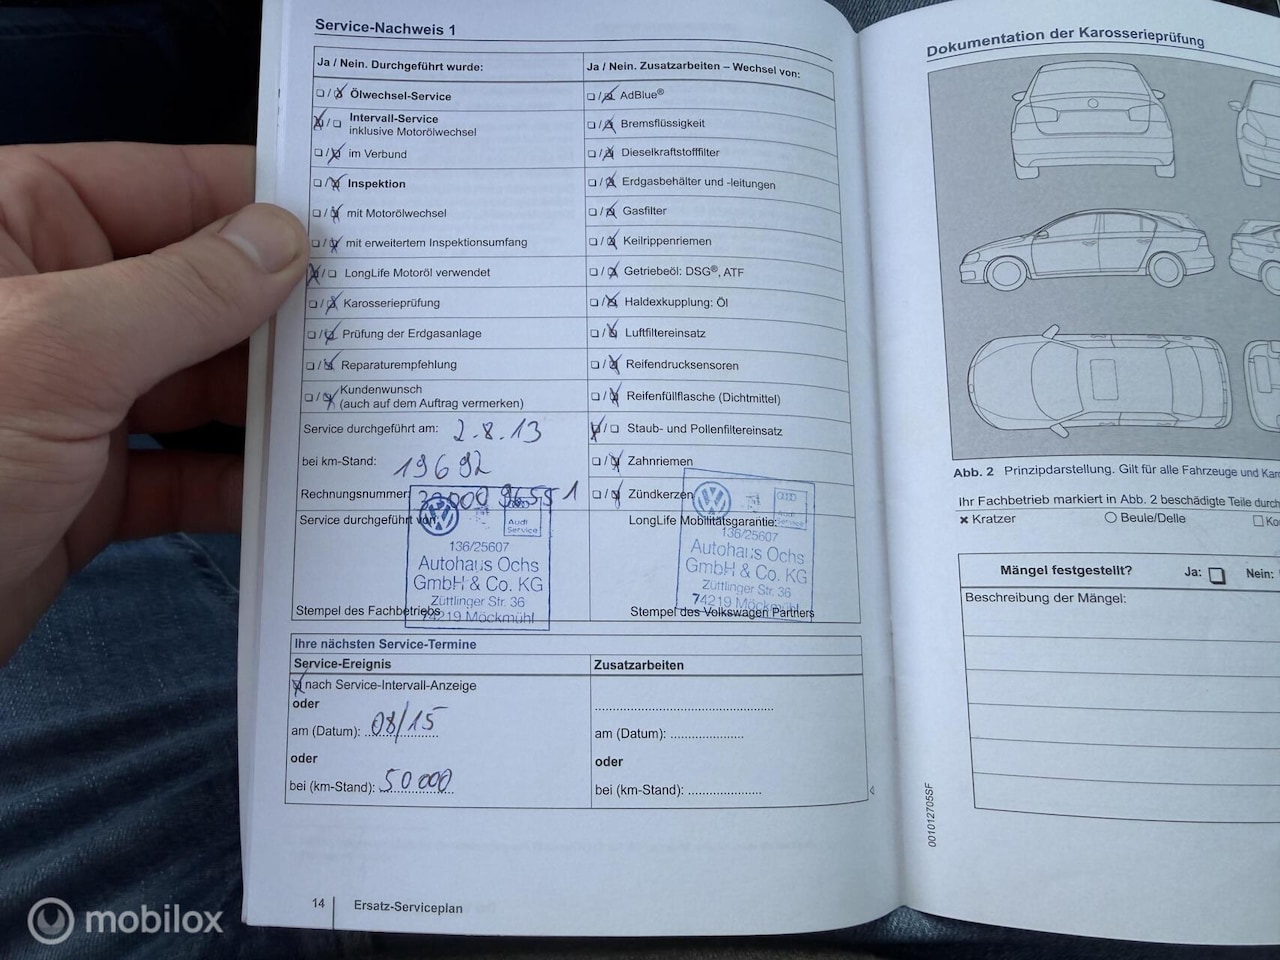 Service-Nachweis 1
Ja / Nein. Durchgeführt wurde:
Ölwechsel-Service
Intervall-Service
inklusive Motorölwechsel
im Verbund
Inspektion
mit Motorölwechsel
mit erweitertem Inspektionsumfang
LongLife Motoröl verwendet
Karosserieprüfung
Prüfung der Erdgasanlage
Reparaturempfehlung
Kundenwunsch
(auch auf dem Auftrag vermerken)
Service durchgeführt am: 2.8.13
bei km-Stand: 19692
Rechnungsnummer:
Service durchgeführt von:
Audi
Service
136/25607
Autohaus Ochs
GmbH & Co. KG
Züttlinger Str. 36
74219 Möckmühl
Stempel des Fachbetriebs
Ja / Nein. Zusatzarbeiten – Wechsel von:
AdBlue®
Bremsflüssigkeit
Dieselkraftstofffilter
Erdgasbehälter und -leitungen
Gasfilter
Keilrippenriemen
Getriebeöl: DSG®, ATF
Haldexkupplung: Öl
Luftfiltereinsatz
Reifendrucksensoren
Reifenfüllflasche (Dichtmittel)
Staub- und Pollenfiltereinsatz
Zahnriemen
Zündkerzen
LongLife Mobilitätsgarantie:
Audi
Service
136/25607
Autohaus Ochs
GmbH & Co. KG
Züttlinger Str. 36
74219 Möckmühl
Stempel des Volkswagen Partners
Ihre nächsten Service-Termine
Service-Ereignis
nach Service-Intervall-Anzeige
oder
am (Datum): 08/15
oder
bei (km-Stand): 50000
Zusatzarbeiten
am (Datum):
oder
bei (km-Stand):
14
Ersatz-Serviceplan
Dokumentation der Karosserieprüfung
Abb. 2 Prinzipdarstellung. Gilt für alle Fahrzeuge und
Ihr Fachbetrieb markiert in Abb. 2 beschädigte Teile durch
Kratzer
Beule/Delle
Mängel festgestellt? Ja: Nein:
Beschreibung der Mängel:
001012705SF
mobilox